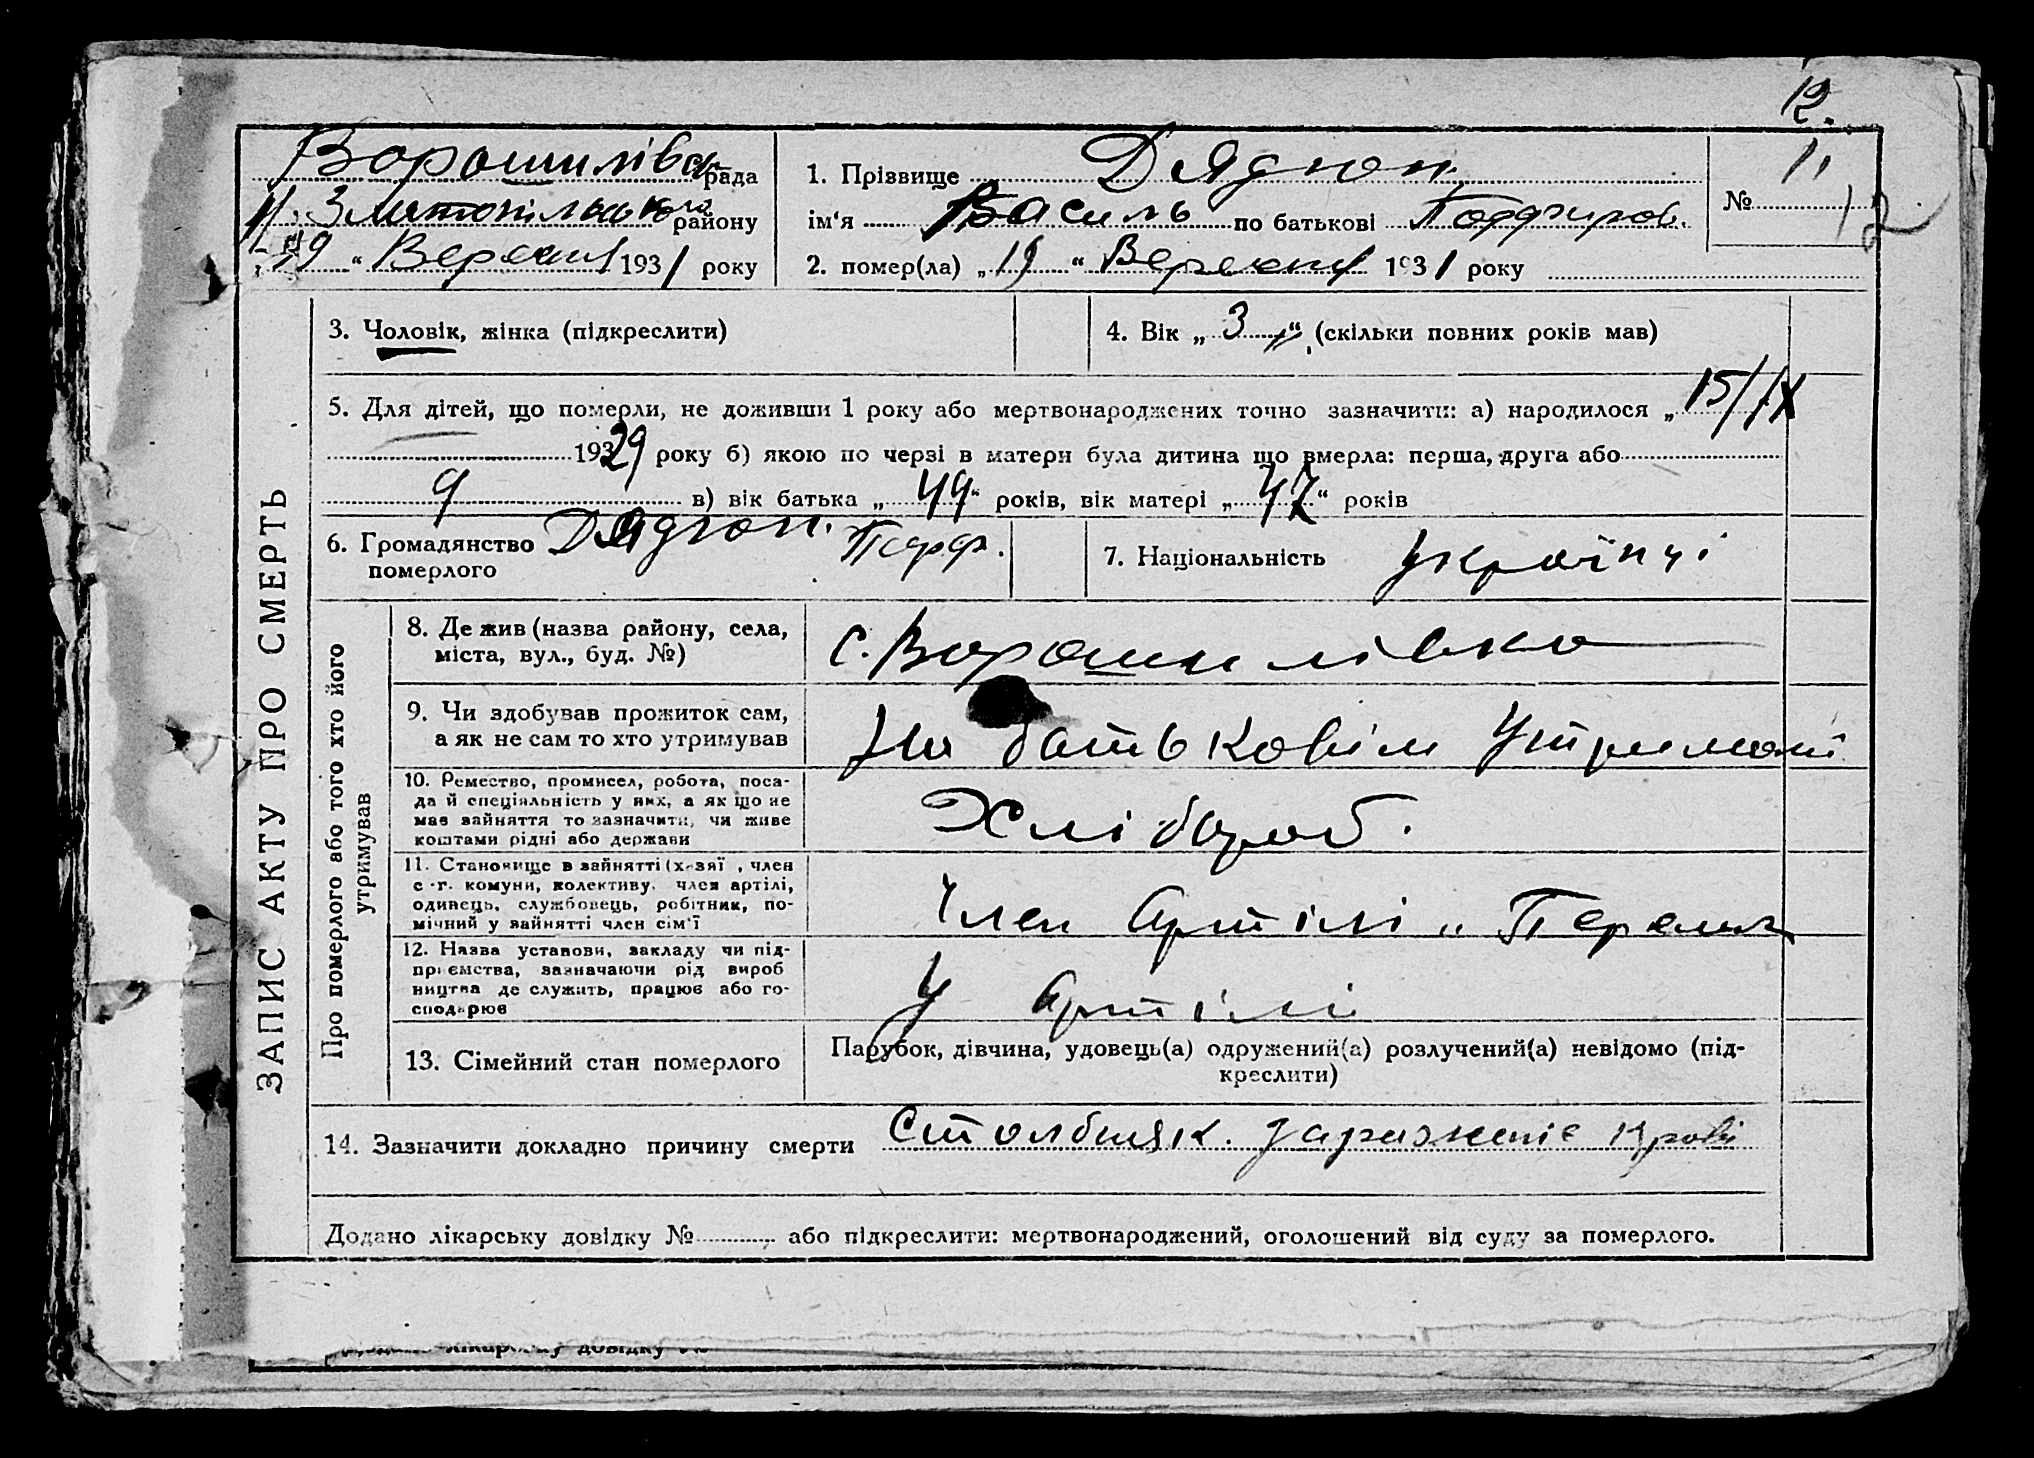 12.
Ворошилівс рада
Н. Златопільського району
„19“ Вересня 1931 року
1. Прізвище Дядюн.
ім'я Василь по батькові
2. помер(ла) „19“ Вересня 1931 року
№ 11
12
ЗАПИС АКТУ ПРО СМЕРТЬ
3. Чоловік, жінка (підкреслити)
4. Вік „3“ (скільки повних років мав)
5. Для дітей, що померли, не доживши 1 року або мертвонароджених точно зазначити: а) народилося „15/IX
19329 року б) якою по черзі в матери була дитина що вмерла: перша, друга або
9 в) вік батька „49“ років, вік матері „47“ років
6. Громадянство Дядюн.
померлого
7. Національність українці
Про померлого або того хто його
утримував
8. Де жив (назва району, села,
міста, вул., буд. №)
с. Ворошилівка
9. Чи здобував прожиток сам,
а як не сам то хто утримував
На батьковім утримані
10. Ремество, промисел, робота, поса-
да й спеціяльність у них, а як що не
має зайняття то зазначити, чи живе
коштами рідні або держави
Хлібороб.
11. Становище в зайнятті (хазяї , член
с.-г. комуни, колективу, член артілі,
одинець, службовець, робітник, по-
мічний у зайнятті член сім'ї
Член Артілі „
12. Назва установи, закладу чи під-
приємства, зазначаючи рід вироб
ництва де служить, працює або го-
сподарює
У Артілі
13. Сімейний стан померлого
Парубок, дівчина, удовець(а) одружений(а) розлучений(а) невідомо (під-
креслити)
14. Зазначити докладно причину смерти Столбняк. зараженіе крові
Додано лікарську довідку № або підкреслити: мертвонароджений, оголошений від суду за померлого.
лікарську довідку №